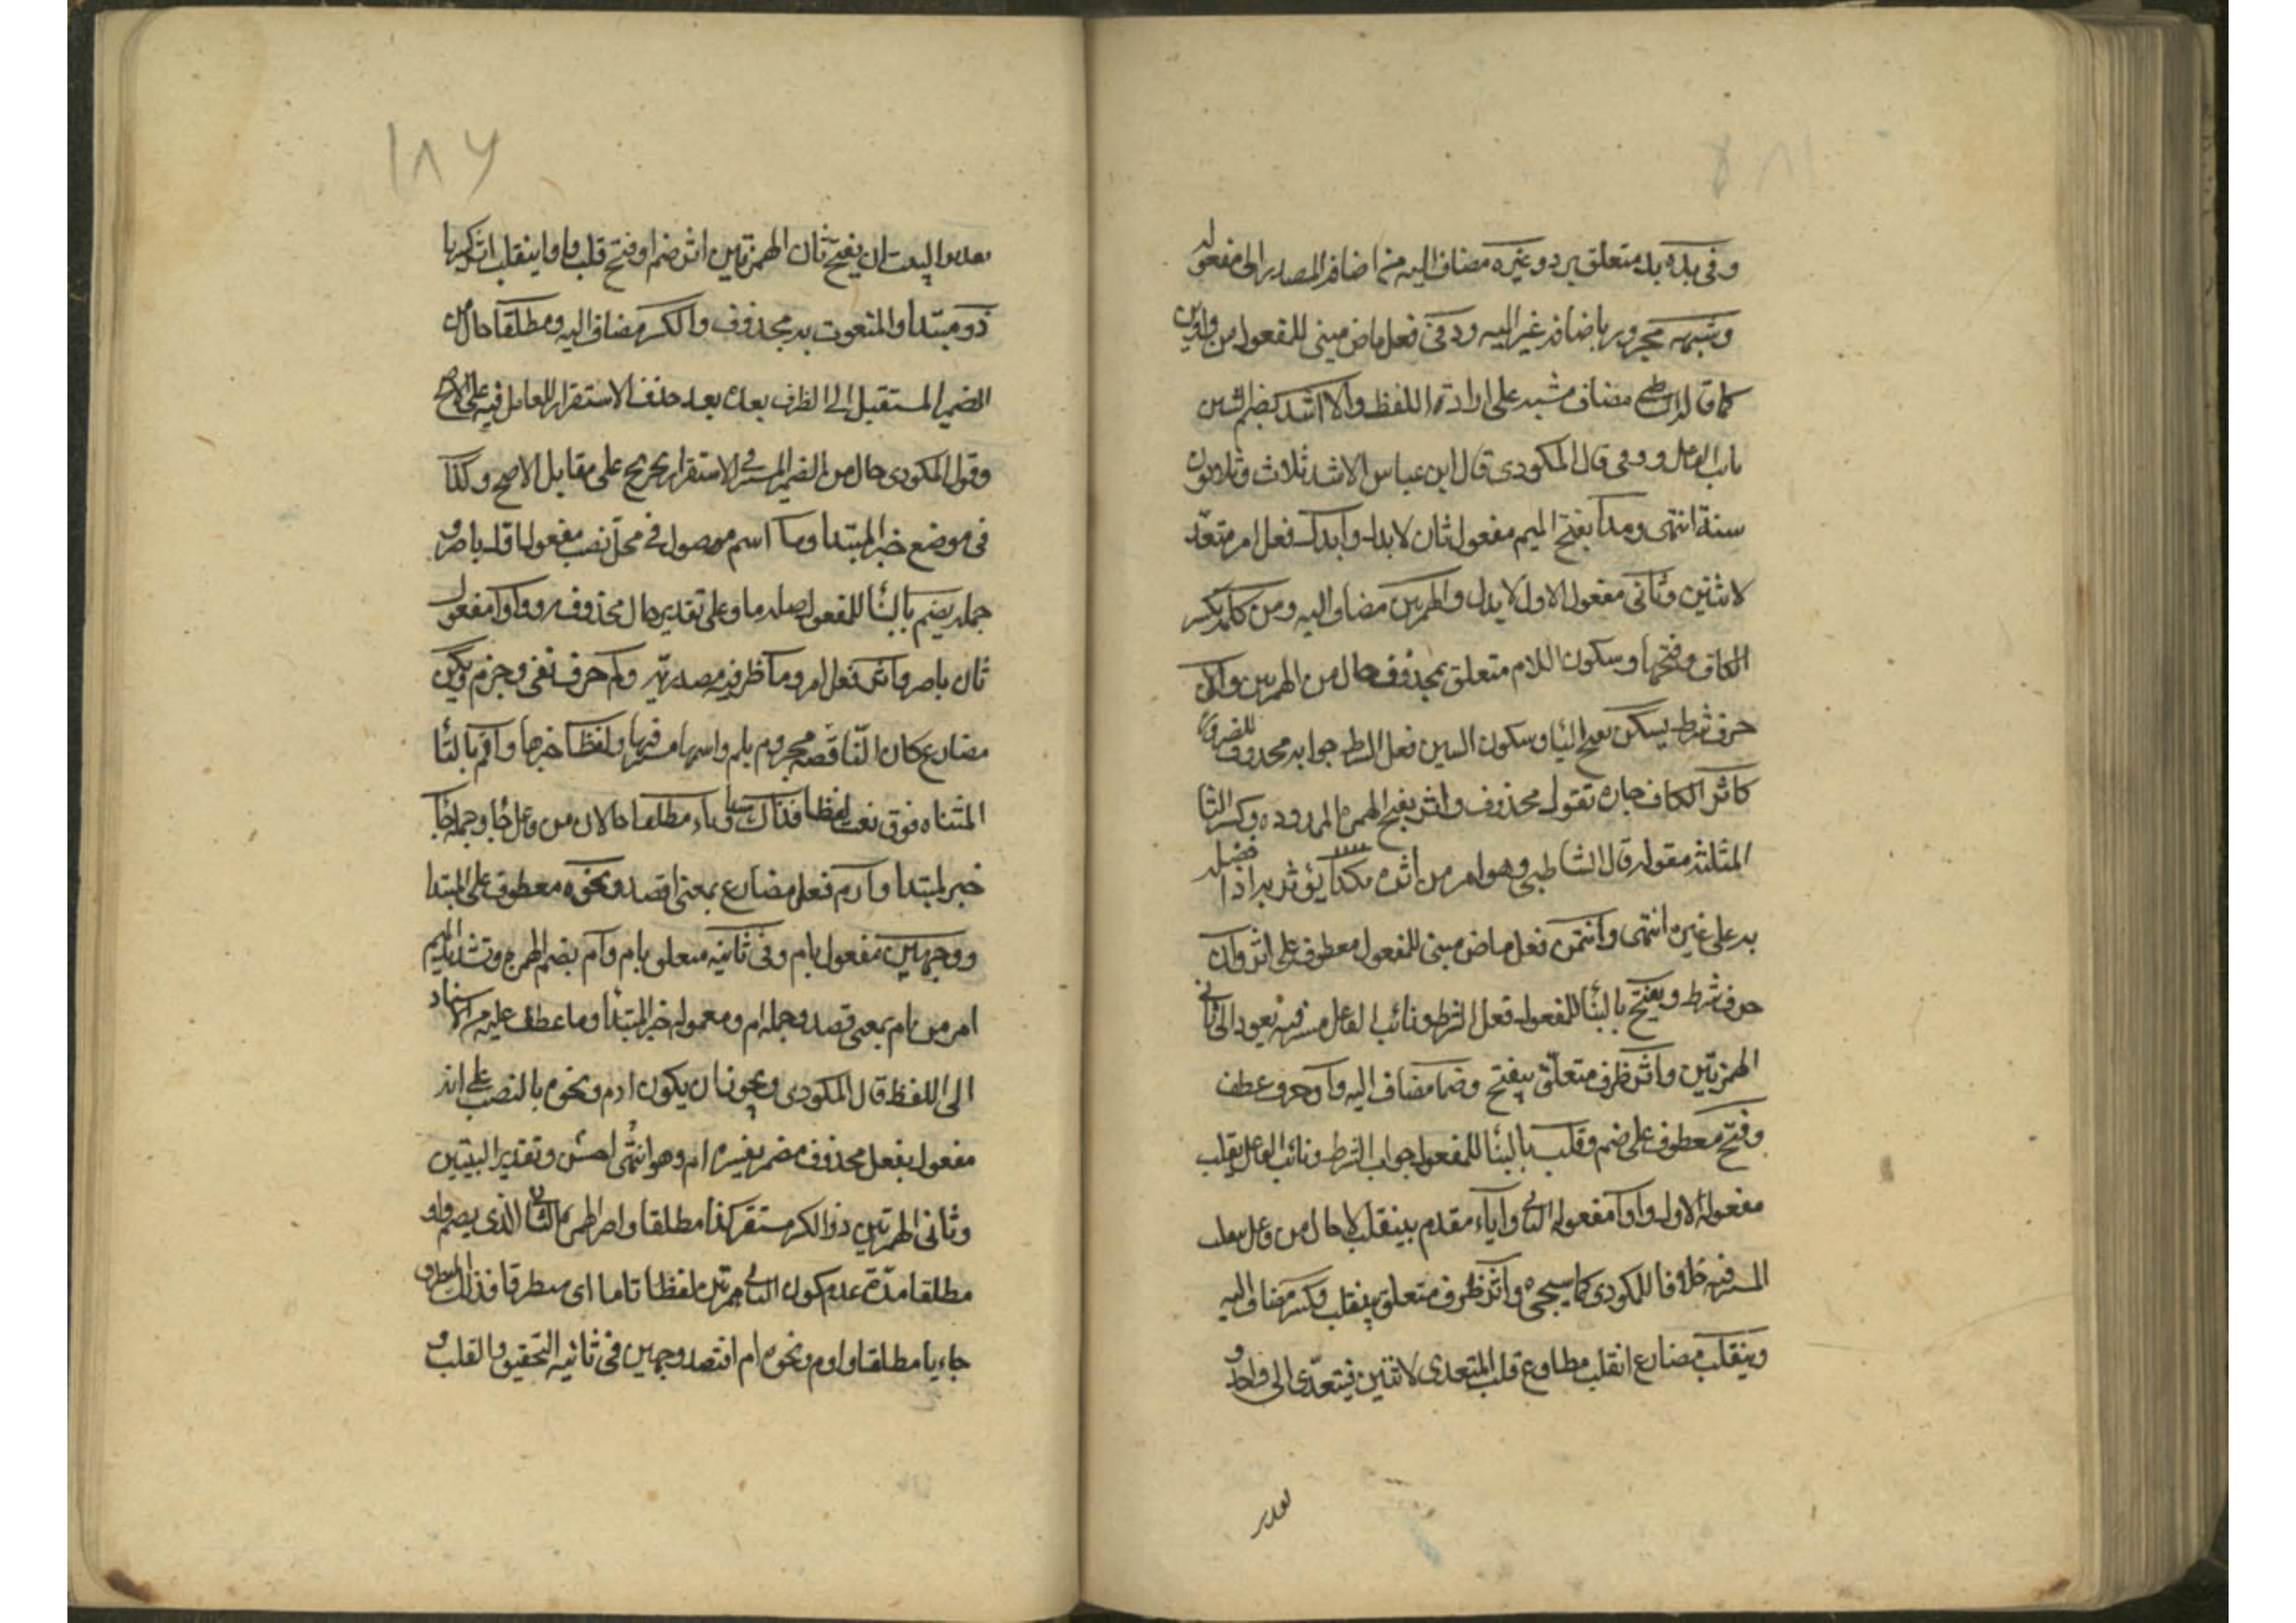 وفى بدء بدء متعلق برد وغيره مضاف اليه من اضافة المصدر الى مفعوله
وشبهه مجرور باضافة غير اليه ووفى فعل ماض مبنى للمفعول من
كما قال مضاف مشبه على ارادة اللفظ والا اشد بضم الشين
نائب الفاعل ووفى قال المكودى قال ابن عباس الاشد ثلاث وثلاثون
سنة انتهى ومدا بفتح الميم مفعول ثان لابدل وابدل فعل امر متعد
لاثنين وثانى مفعول الاول لابدل والهمزين مضاف اليه ومن كلمة بكسر
الكاف وفتحها وسكون اللام متعلق بمحذوف حال من الهمزين وان
حرف شرط يسكن بفتح اليا وسكون السين فعل الشرط جوابه محذوف للضرورة
كاثر الكاف جارة لقول محذوف واثر بفتح الهمزة الممدودة وكسر الثا
المثلثة مقوله قال الشاطبى وهو امر من اثره بكذا يؤثر به اذا فضله
به على غيره انتهى وائتمن فعل ماض مبنى للمفعول معطوف على اثر وان
حرف شرط ويفتح بالبنا للمفعول فعل الشرط ونائب الفاعل مستتر فيه يعود الى ثانى
الهمزتين واثر ظرف متعلق بيفتح وضم مضاف اليه واو حرف عطف
وفتح معطوف على ضم وقلب بالبنا للمفعول جواب الشرط ونائب الفاعل بقلب
مفعوله الاول وواوا مفعوله الثانى وياء مقدم بينقلب لا حال من فاعل ينقلب
المستتر فيه خلافا للمكودى كما سيجىء واثر ظرف متعلق بينقلب وكسر مضاف اليه
وينقلب مضارع انقلب مطاوع قلب المتعدى لاثنين فيتعدى الى واحد و
تقدير
١٨٦
تقدير البيت ان يفتح ثان الهمزتين اثر ضم او فتح قلب واوا وينقلب اثر كسر يا
ذو مبتدا والمنعوت به محذوف والكسر مضاف اليه ومطلقا حال من
الضمير المستقبل الى الظرف بعده بعد حذف الاستقرار العامل فيه على الاصح
وقول المكودى حال من الضمير المستتر فى الاستقرار تخريج على مقابل الاصح وكذا
فى موضع خبر المبتدا وما اسم موصول فى محل نصب مفعول اول باصر و
جملة يضم بالبنا للمفعول صلة ما وعلى تقدير حال محذوف وواوا مفعول
ثان باصر واصر فعل امر وما ظرفية مصدرية ولم حرف نفى وجزم ويكن
مضارع كان الناقصة مجزوم بلم واسمها مستتر فيها ولفظا خبرها واتم بالتا
المثناه فوق نعت لفظا فذاك مبتدا وياء مطلقا حالان من فاعل جا وجملة جا
خبر المبتدا واؤم فعل مضارع بمعنى اقصد ونحوه معطوف على المبتدا
ووجهين مفعول بام وفى ثانيه متعلق بام وام بضم الهمزة وتشديد الميم
امر من ام بمعنى قصد وجملة ام ومعموله خبر المبتدا وما عطف عليه من الاسناد
الى اللفظ قال المكودى ويجوز ان يكون اوم ونحوه بالنصب على انه
مفعول بفعل محذوف مضمر يفسره ام وهو انتهى احسن وتقدير البيتين
وثانى الهمزتين ذو الكسر مستقر كذا مطلقا واصر الهمز الثانى الذى يضم واوا
مطلقا مدة عدم كون الثانى همزتين لفظا تاما اى متطرفا فذاك المتطرف
جاء يا مطلقا واوم ونحوه ام اقصد وجهين فى ثانيه التحقيق والقلب و